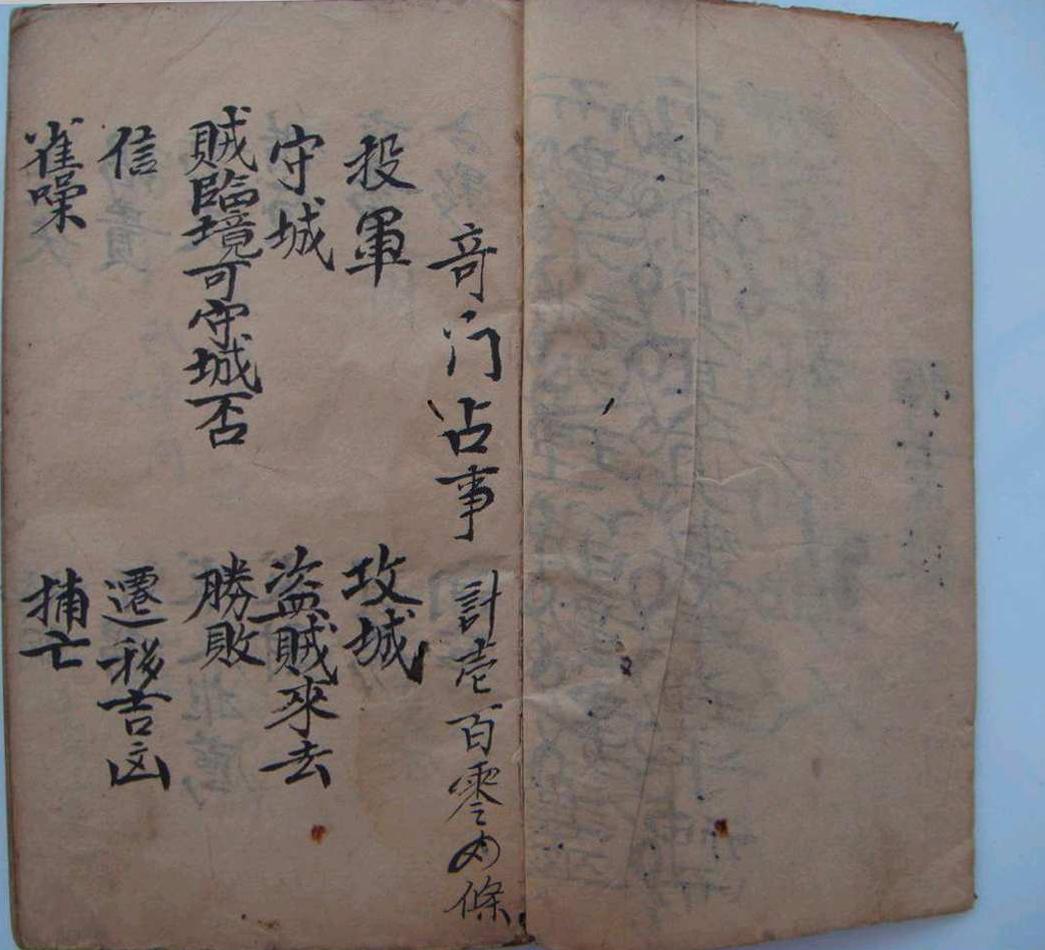 竒门占事 計壹百零四條
投軍 攻城
守城 盗賊來去
賊臨境可守城否 勝敗
信 遷移吉凶
雀噪 捕亡